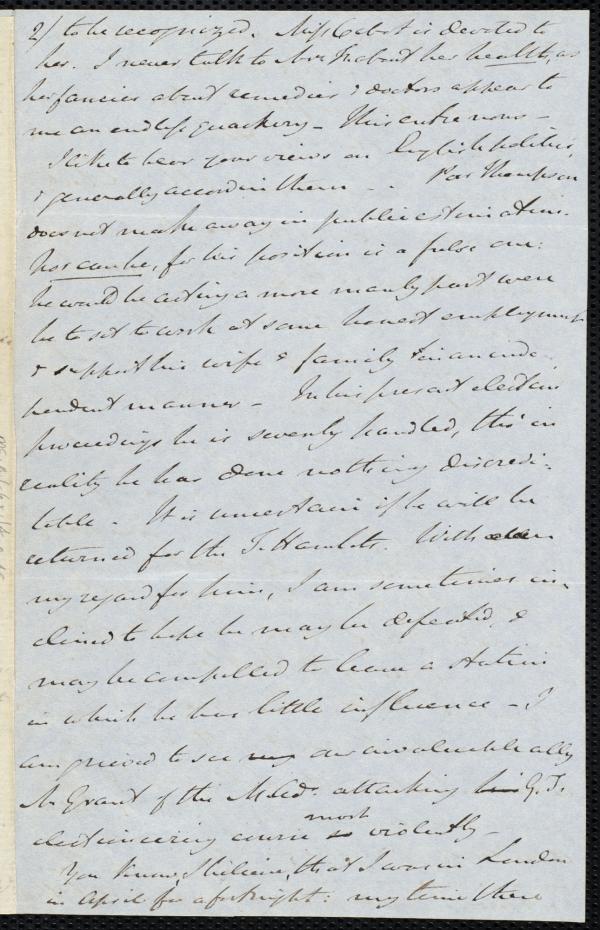 2/ to be recognized. Miss Cabot is devoted to
her. I never talk to Mrs Fr about her health, as
her fancies about remedies & doctors appear to
me an endless quackery – This entre nous –
I like to hear your views on English politics,
& generally accord in them – – Poor Thompson
does not make away in public estimation.
Nor can he, for his position is a false one:
he would be acting a more manly part were
he to set to work at some honest employment
& support his wife & family in an inde
pendent manner – In his present election
proceedings he is severely handled, tho' in
reality he has done nothing discredi-
table – It is uncertain if he will be
returned for the T. Hamlets. With
my regard for him, I am sometimes in-
clined to hope he may be defeated, &
may be compelled to leave a station
in which he has little influence – I
am grieved to see my our invaluable ally
Mr Grant of the M. Adr. attacking his G. T.
electioneering course so most violently –
You know, I believe, that I was in London
in April for a fortnight: my time there